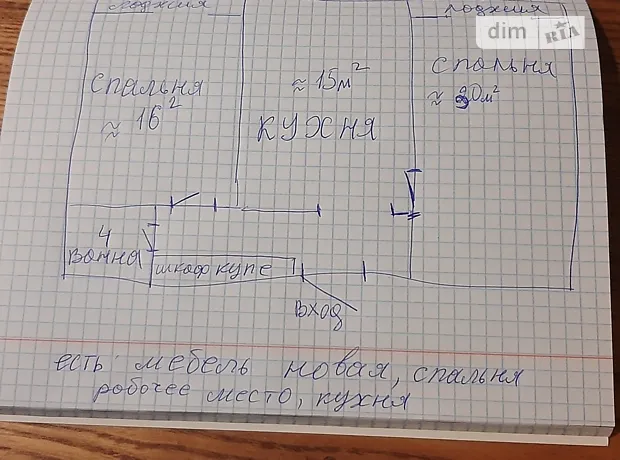 лоджия
лоджия
dim RIA
спальня
≈ 16²
≈ 15м²
кухня
спальня
≈ 20м²
4
ванна
шкаф купе
вход
есть мебель новая, спальня
робочее место, кухня